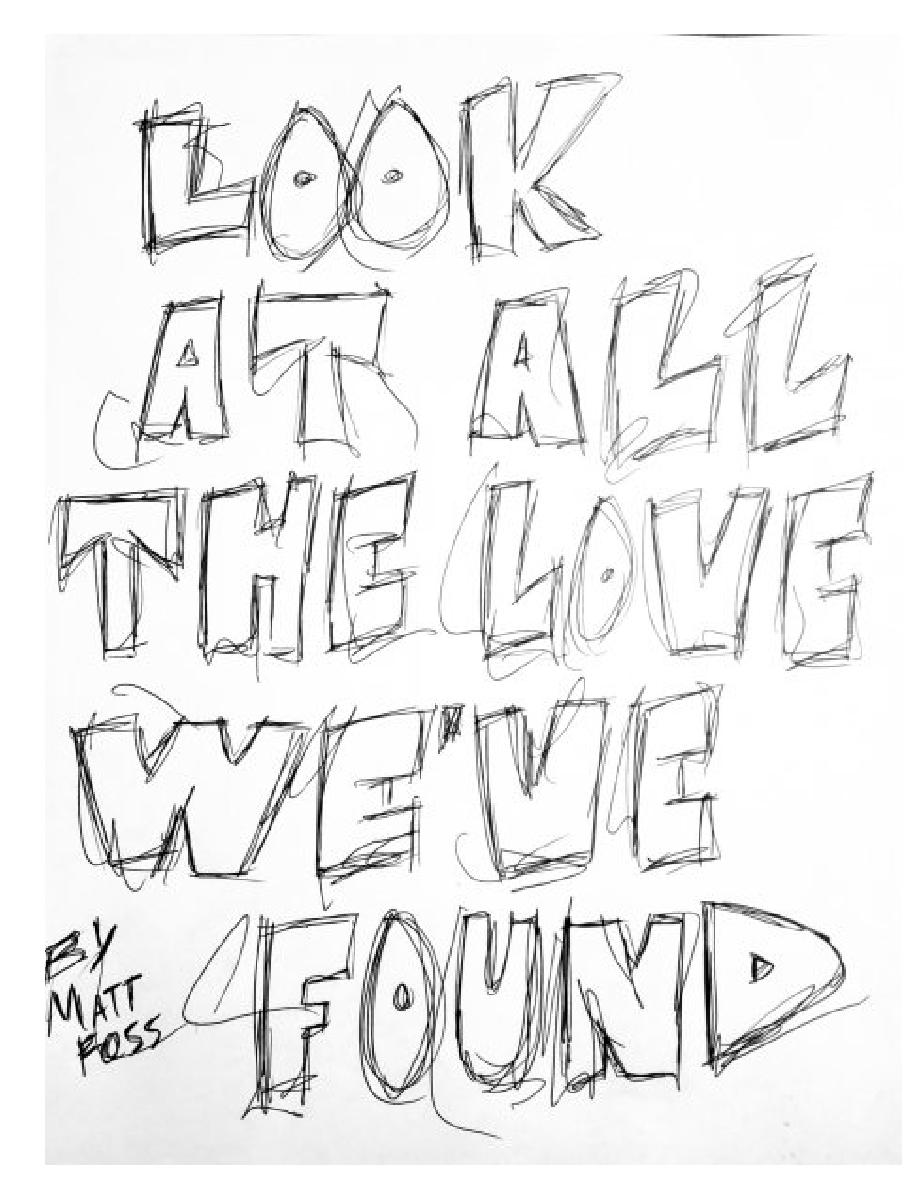 LOOK
AT ALL
THE LOVE
WE'VE
FOUND
BY
MATT
ROSS